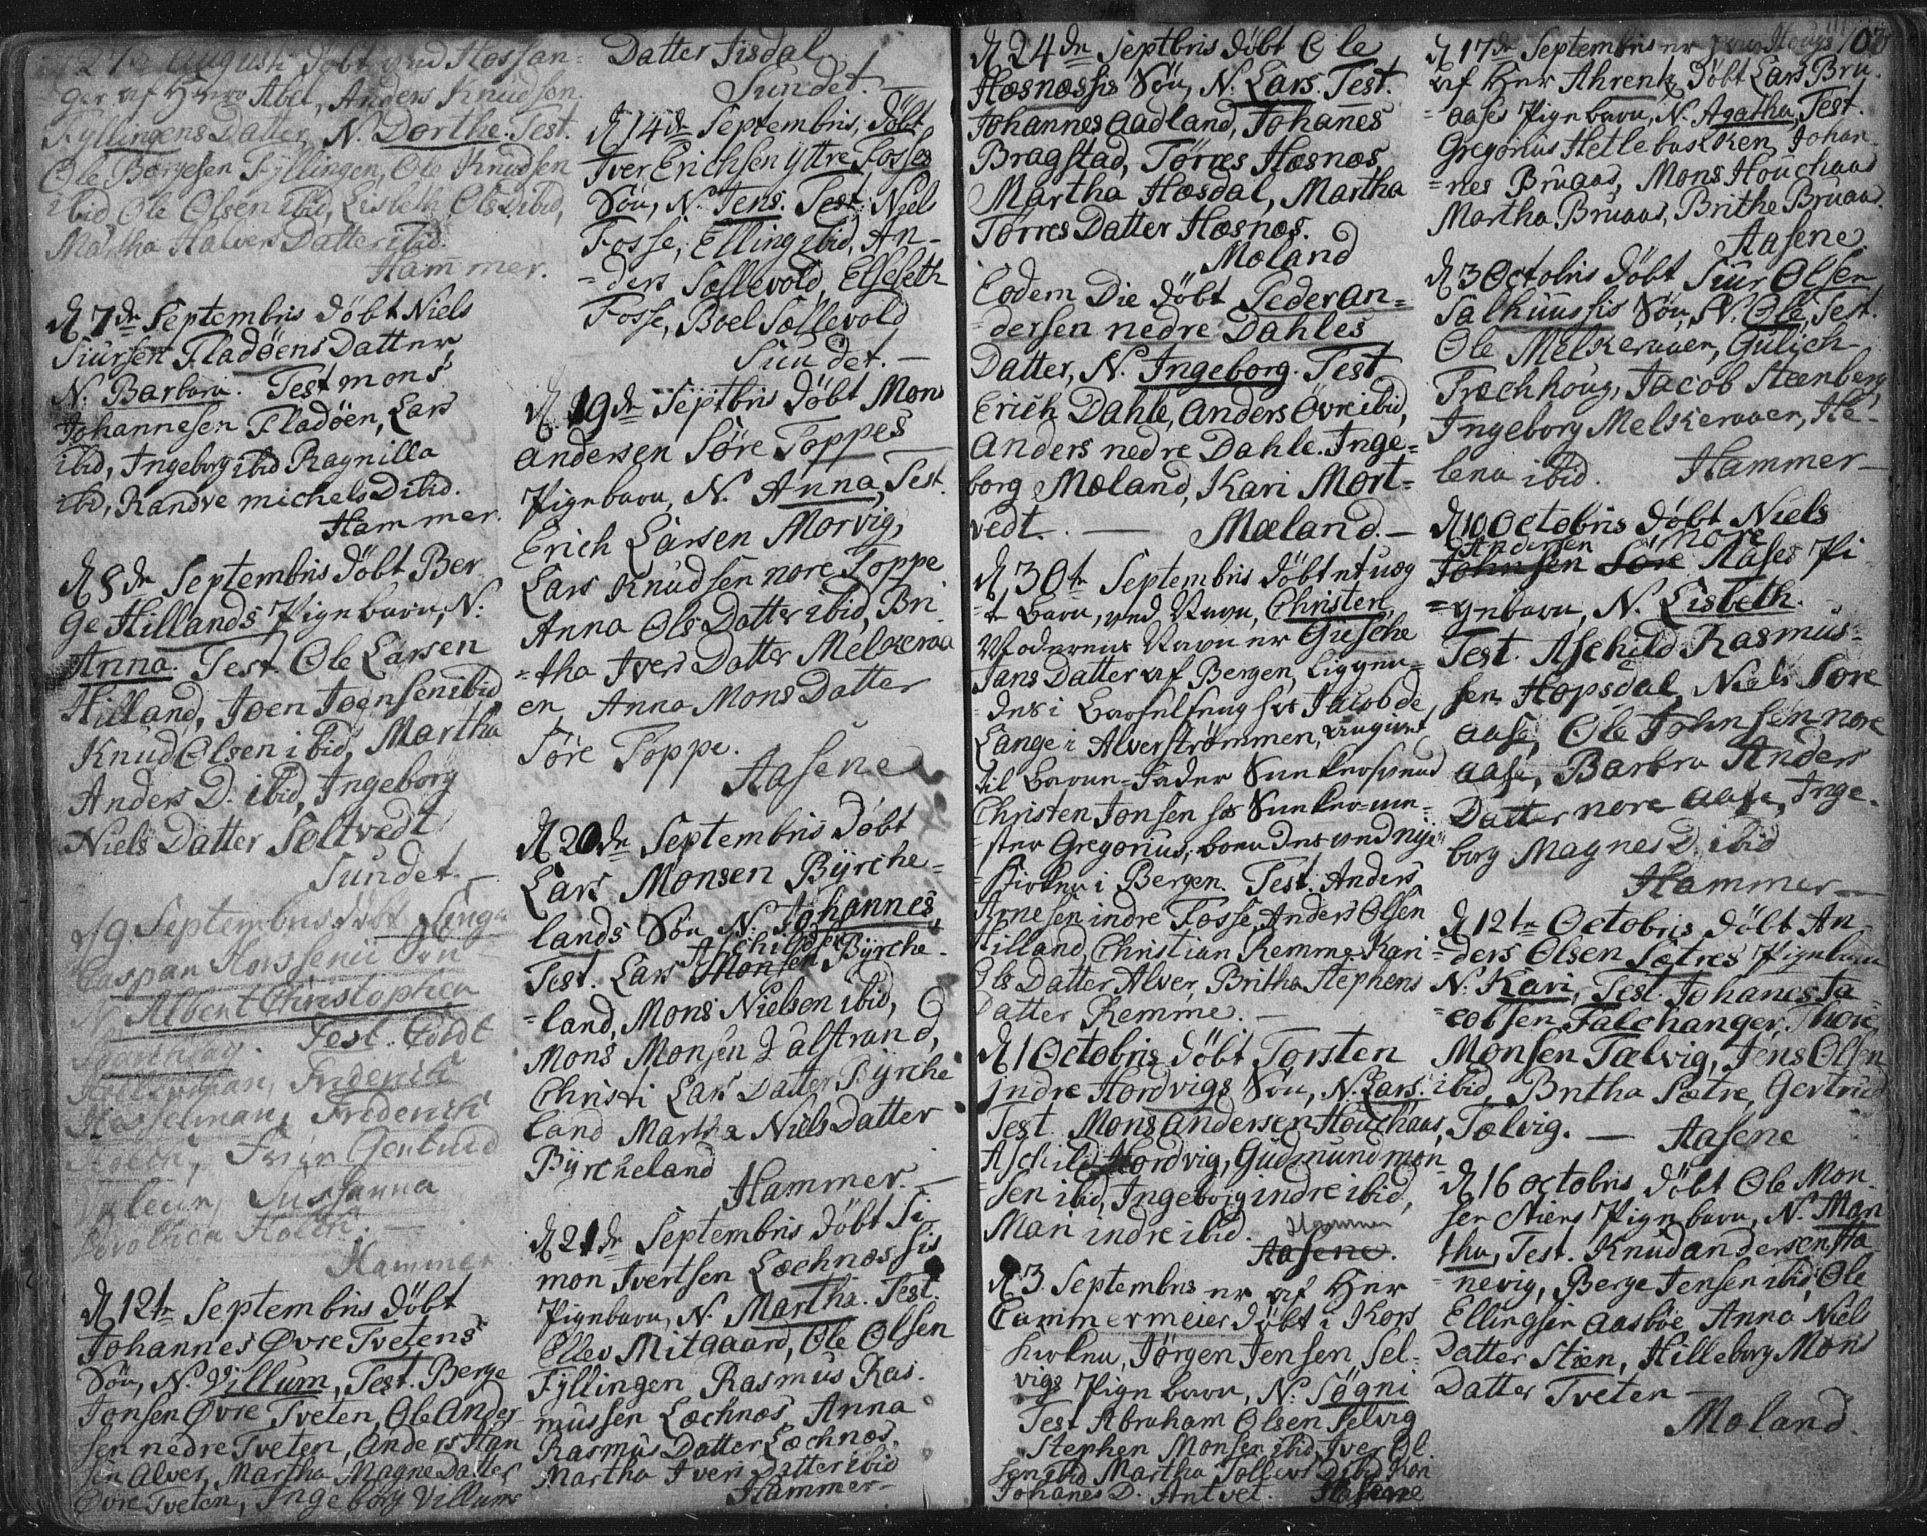 27de Augusti døbt ved Hossan-
ger af Herr Abel, Anders Knudsen
Fyllingens Datter, N. Dorthe. Test.
Ole Børgesen Fyllingen, Ole Knudsen
ibid, Ole Olsen ibid, Lisbeth Ols D. ibid,
Martha Halvers Datter ibid.
Hammer.
D 7de Septembris døbt Niels
Siursen Fladøens Datter,
N. Barbara. Test Mons
Johannesen Fladøen, Lars
ibid, Ingeborg ibid Ragnilla
ibid, Randve Michels D ibid.
Hammer.
D 8de Septembris døbt Ber
ge Hillands Pigebarn, N.
Anna. Test. Ole Larsen
Hilland, Joen Joensen ibid
Knud Olsen ibid, Martha
Anders D. ibid, Ingeborg
Niels Datter Soltvedt
Sundet.
d 9. Septembris døbt
Caspar
N. Albert Christopher
Test.
Frederich
Hasselman, Frederich
Holch, Gertrud
Sussanna
Dorothea Holch.
Hammer
D 12te Septembris døbt
Johannes Øvre Tvetens
Søn, N. Villum, Test. Berge
Jonsen Øvre Tveten, Ole Ander
sen nedre Tveten, Anders Han
sen Alver, Martha Magne Datter
Øvre Tveten, Ingeborg Villums
Datter Iisdal
Sundet.
D 14de Septembris, døbt
Iver Erichsen yttre Fosses
Søn, N. Jens. Test. Niels
Fosse, Elling ibid, An-
-ders Sællevold, Elsebeth
Fosse, Boel Sællevold
Sundet.
D 19de Septbris døbt Mons
Andersen Søre Toppes
Pigebarn, N. Anna, Test.
Erich Larsen Morvig,
Lars Knudsen nore Toppe
Anna Ols Datter ibid, Bri
-tha Iver Datter Melkeraa
en, Anna Mons Datter
Søre Toppe.
Aasene
D 20de Septembris døbt
Lars Monsen Byrche-
lands Søn N. Johannes,
Test. Lars Aschildsen Monsen Byrche-
-land, Mons Nielsen ibid,
Mons Monsen Qalstrand,
Christi Lars Datter Byrche
land Martha Niels Datter
Byrcheland
Hammer.
D 21de Septembris døbt Si
mon Ivertsen Læchnæssis
Pigebarn, N. Martha. Test.
Elles Mitgaard, Ole Olsen
Fyllingen Rasmus Ras-
mussen Læchnæs, Anna
Rasmus Datter Læchnæs,
Martha Ivers Datter ibid
Hammer
D 24de Septbris døbt Ole
Hæsnæssis Søn, N. Lars. Test.
Johannes Aadland, Johanes
Bragstad, Tørres Hæsnæs,
Martha Hæsdal, Martha
Tørres Datter Hæsnæs.
Mæland
Eodem Die døbt Peder An-
dersen nedre Dahles
Datter, N. Ingeborg. Test
Erich Dahle, Anders Øvre ibid,
Anders nedre Dahle. Inge-
borg Mæland, Kari Mort-
vedt. Mæland.
D 30te Septembris døbt et uæg
-te Barn, ved Navn, Christen,
Moderens Navn er Giesche
Jans Datter af Bergen, liggen-
des i Barselseng hos Jacob de
Lange i Alverstrømmen, udgivet
til Barne-Fader Snekersvend
Christen Jonsen hos Snekerme-
-ster Gregorius, boendes ved nye
Kirken i Bergen. Test. Anders
Arnesen indre Fosse, Anders Olsen
Hilland, Christian Remme, Kari
Ols Datter Alver, Britha Stephens
Datter Remme.
D 1 Octobris døbt Torsten
Indre Hordvigs Søn, N. Lars.
Test. Mons Andersen Houchaas,
Aschild Hordvig, Gudmund Mon
-sen ibid, Ingeborg indre ibid,
Mari indre ibid. Hammer
Aasene.
D 3. Septembris er af Her
Cammermeier døbt i Kors
Kirken, Jørgen Jensen Sel-
vigs Pigebarn, N. Søgni
Test Abraham Olsen Selvig
Stephen Monsen ibid, Iver Ol-
sen ibid Martha Tollevs D ibid Kari
Johanes D. Antvet. Aasene
103
D 17de Septembris er
af Her Ahrentz døbt Lars Bru-
aases Pigebarn, N. Agatha, Test.
Gregorius Hetlebakken, Johan-
-nes Bruaas, Mons Houchaas
Martha Bruaas, Brithe Bruaas.
Aasene
D 3 Octobris døbt Siur Olsen
Salhuussis Søn, N. Ole, Test.
Ole Melkeraaen, Gulich
Træchhoug, Jacob Steenberg,
Ingeborg Melkeraaen, He-
lena ibid. Hammer
D 10 Octobris døbt Niels
Andersen nore
Johnsen Søre Aases Pi
-gebarn, N. Lisbeth.
Test. Aschild Rasmus-
sen Hopsdal, Niels Søre
Aase, Ole Johnsen nore
Aase, Barbra Anders
Datter nore Aase, Inge-
borg Magnes D. ibid
Hammer
D 12te Octobris døbt An-
-ders Olsen Sætres Pigebarn
N. Kari, Test. Johanes Ja
-cobsen Falchanger, Thore
Monsen Tælvig, Jens Olsen
ibid, Britha Sætre, Gertrud
Tælvig. Aasene
D 16 Octobris døbt Ole Mon-
sen Stiens Pigebarn, N. Mar
tha, Test. Knud Andersen Ha-
nevig, Berge Jensen ibid, Ole
Ellingsen Aasbøe Anna Niels
Datter Stien, Hilleborg Mons
Datter Tveten
Mæland.